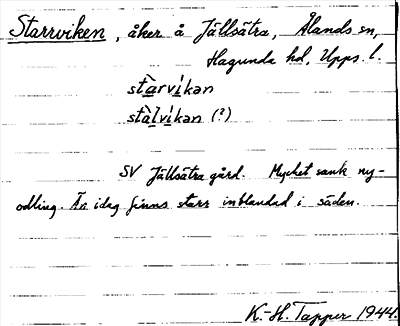 Starrviken, åker å Jällsätra, Ålands sn,
Hagunda hd, Upps. l.
stàrvikan
stàlvikan (?)
SV Jällsätra gård. Mycket sank ny-
odling. Än idag finns starr inblandad i säden.
K.-H. Tapper 1944.